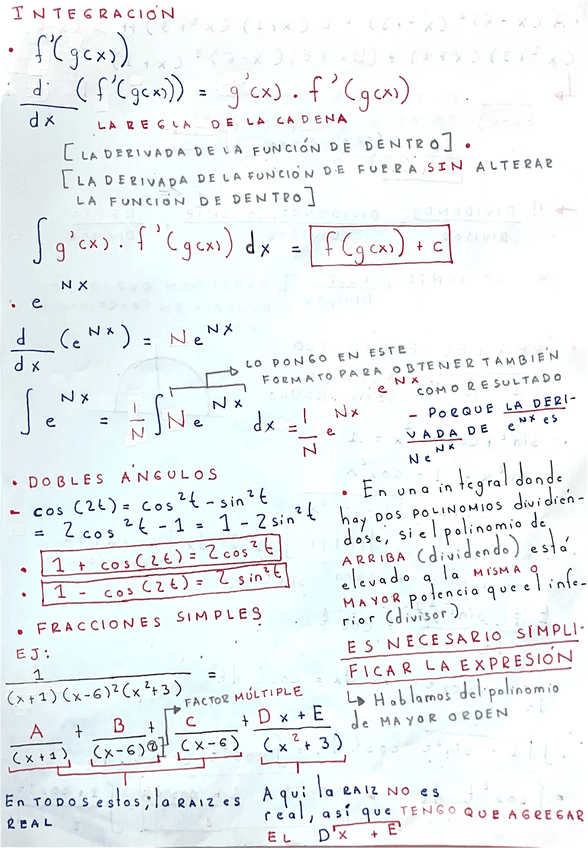 INTEGRACIÓN
• f'(g(x))
d/dx (f'(g(x))) = g'(x) . f'(g(x))
LA REGLA DE LA CADENA
[LA DERIVADA DE LA FUNCIÓN DE DENTRO] •
[LA DERIVADA DE LA FUNCIÓN DE FUERA SIN ALTERAR
LA FUNCIÓN DE DENTRO]
∫ g'(x) . f'(g(x)) dx = f(g(x)) + c
• e^NX
d/dx (e^NX) = N e^NX
LO PONGO EN ESTE
FORMATO PARA OBTENER TAMBIÉN
e^NX COMO RESULTADO
∫ e^NX = 1/N ∫ N e^NX dx = 1/N e^NX
- PORQUE LA DERI-
VADA DE e^NX es
Ne^NX
• DOBLES ÁNGULOS
- cos (2t) = cos²t - sin²t
= 2 cos²t - 1 = 1 - 2 sin²t
• 1 + cos(2t) = 2cos²t
• 1 - cos(2t) = 2 sin²t
• En una integral donde
hay DOS POLINOMIOS dividién-
dose, si el polinomio de
ARRIBA (dividendo) está
elevado a la MISMA O
MAYOR potencia que el infe-
rior (divisor)
ES NECESARIO SIMPLI-
FICAR LA EXPRESIÓN
↳ Hablamos del polinomio
de MAYOR ORDEN
• FRACCIONES SIMPLES
EJ:
1/((x+1)(x-6)²(x²+3)) =
FACTOR MÚLTIPLE
A/(x+1) + B/(x-6)② + C/(x-6) + Dx + E/(x²+3)
En TODOS estos; la RAIZ es
REAL
Aqui la RAIZ NO es
real, así que TENGO QUE AGREGAR
EL Dx + E